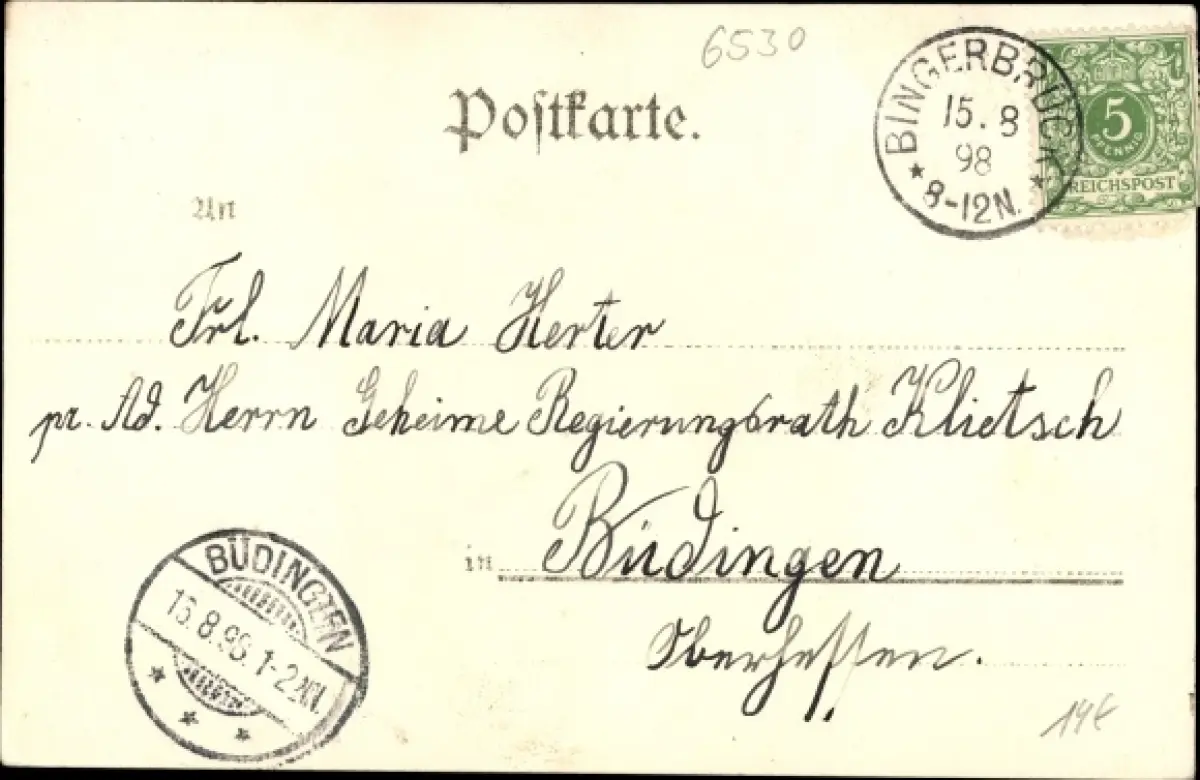 6530
Postkarte.
BINGERBRÜCK
15. 8
98
8-12N.
5
PFENNIG
REICHSPOST
An
Frl. Maria Herter
pr. Ad. Herrn Geheime Regierungsrath Klietsch
in Büdingen
Oberhessen.
BÜDINGEN
8.98. 1-2 N.
14€